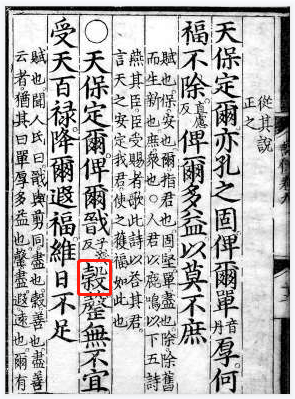 從其說
正之
天保定爾亦孔之固俾爾單音丹厚何
福不除直慮反俾爾多益以莫不庶
賦也保安也爾指君也固堅單盡也除除舊
而生新也庶衆也○人君以鹿鳴以下五詩
燕其臣臣受賜者歌此詩以荅其君
言天之安定我君使之獲福如此也
○天保定爾俾爾戩子淺反穀罄無不宜
受天百禄降爾遐福維日不足
賦也聞人氏曰戩與剪同盡也穀善也盡善
云者猶其曰單厚多益也罄盡遐遠也爾有